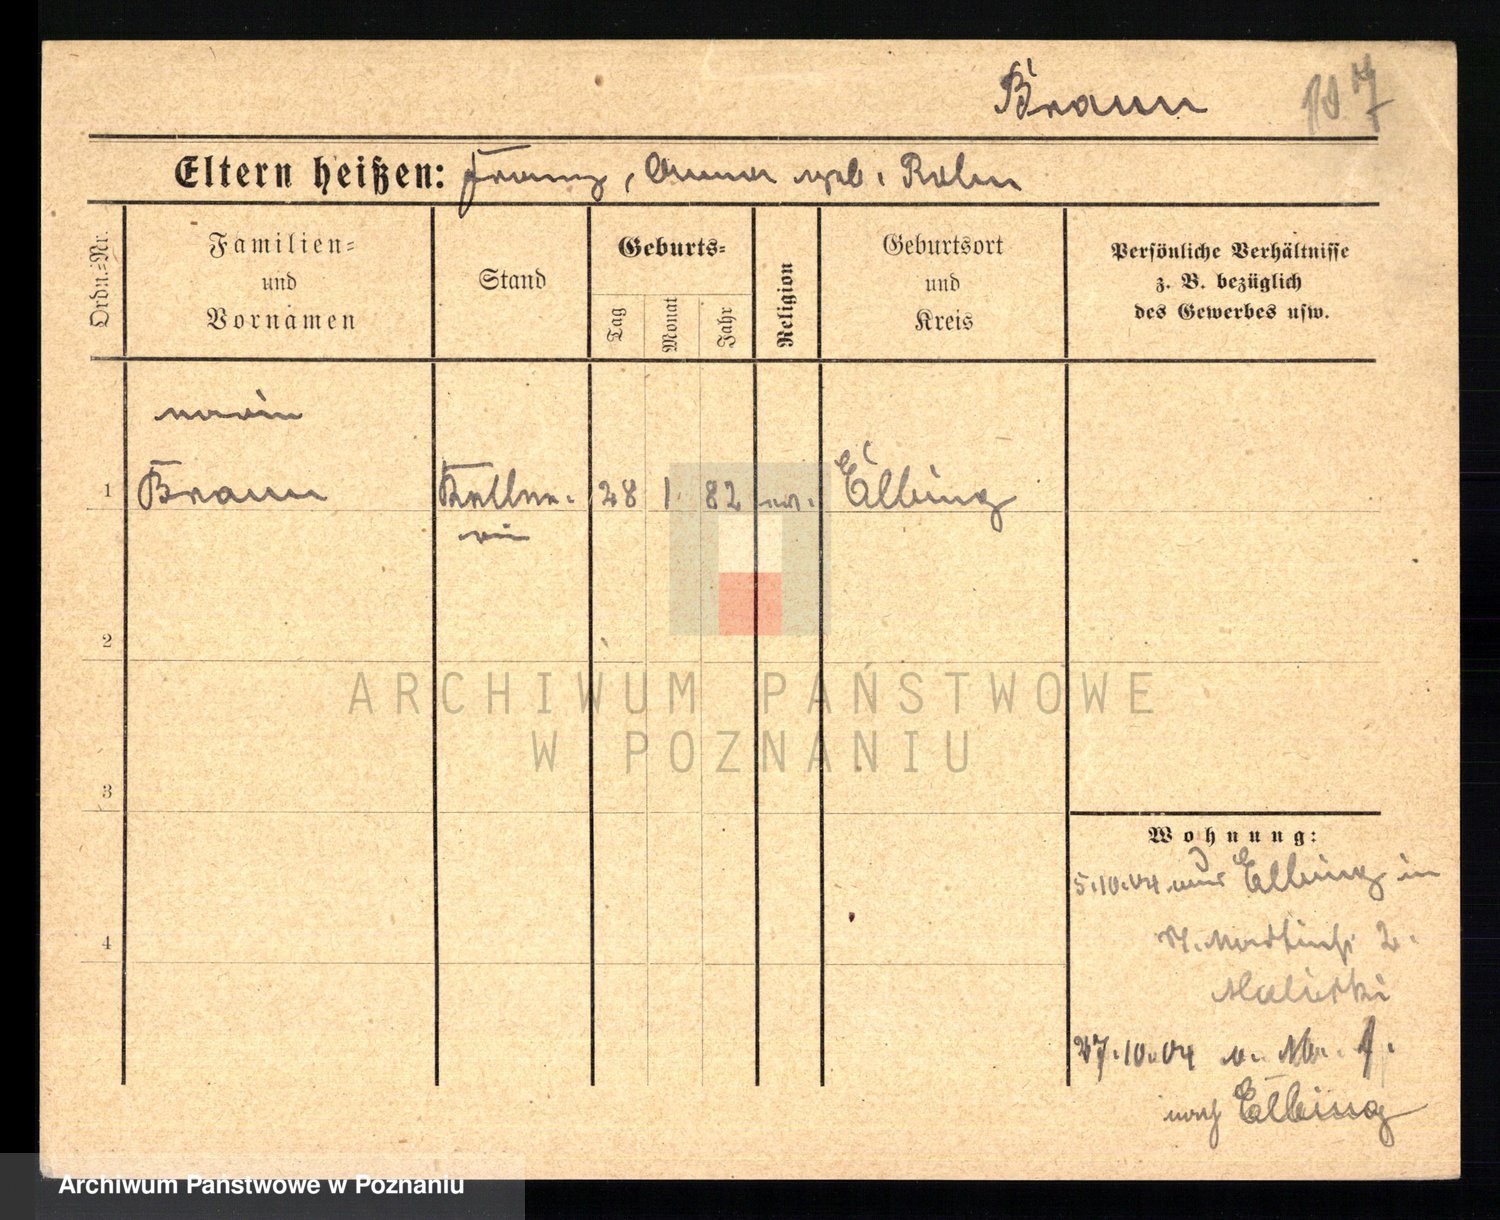 Braun
Eltern heißen: Franz, Anna geb. Rahn
Ordn.=Nr.
Familien=
und
Vornamen
Stand
Geburts=
Tag
Monat
Jahr
Religion
Geburtsort
und
Kreis
Persönliche Verhältnisse
z. B. bezüglich
des Gewerbes usw.
1 Braun Kellne- 28 1 82 Elbing
rin
2
3
4
Wohnung:
5.10.04 aus Elbing in
St. Martinstr 2.
27.10.04
nach Elbing
ARCHIWUM PAŃSTWOWE
W POZNANIU
Archiwum Państwowe w Poznaniu